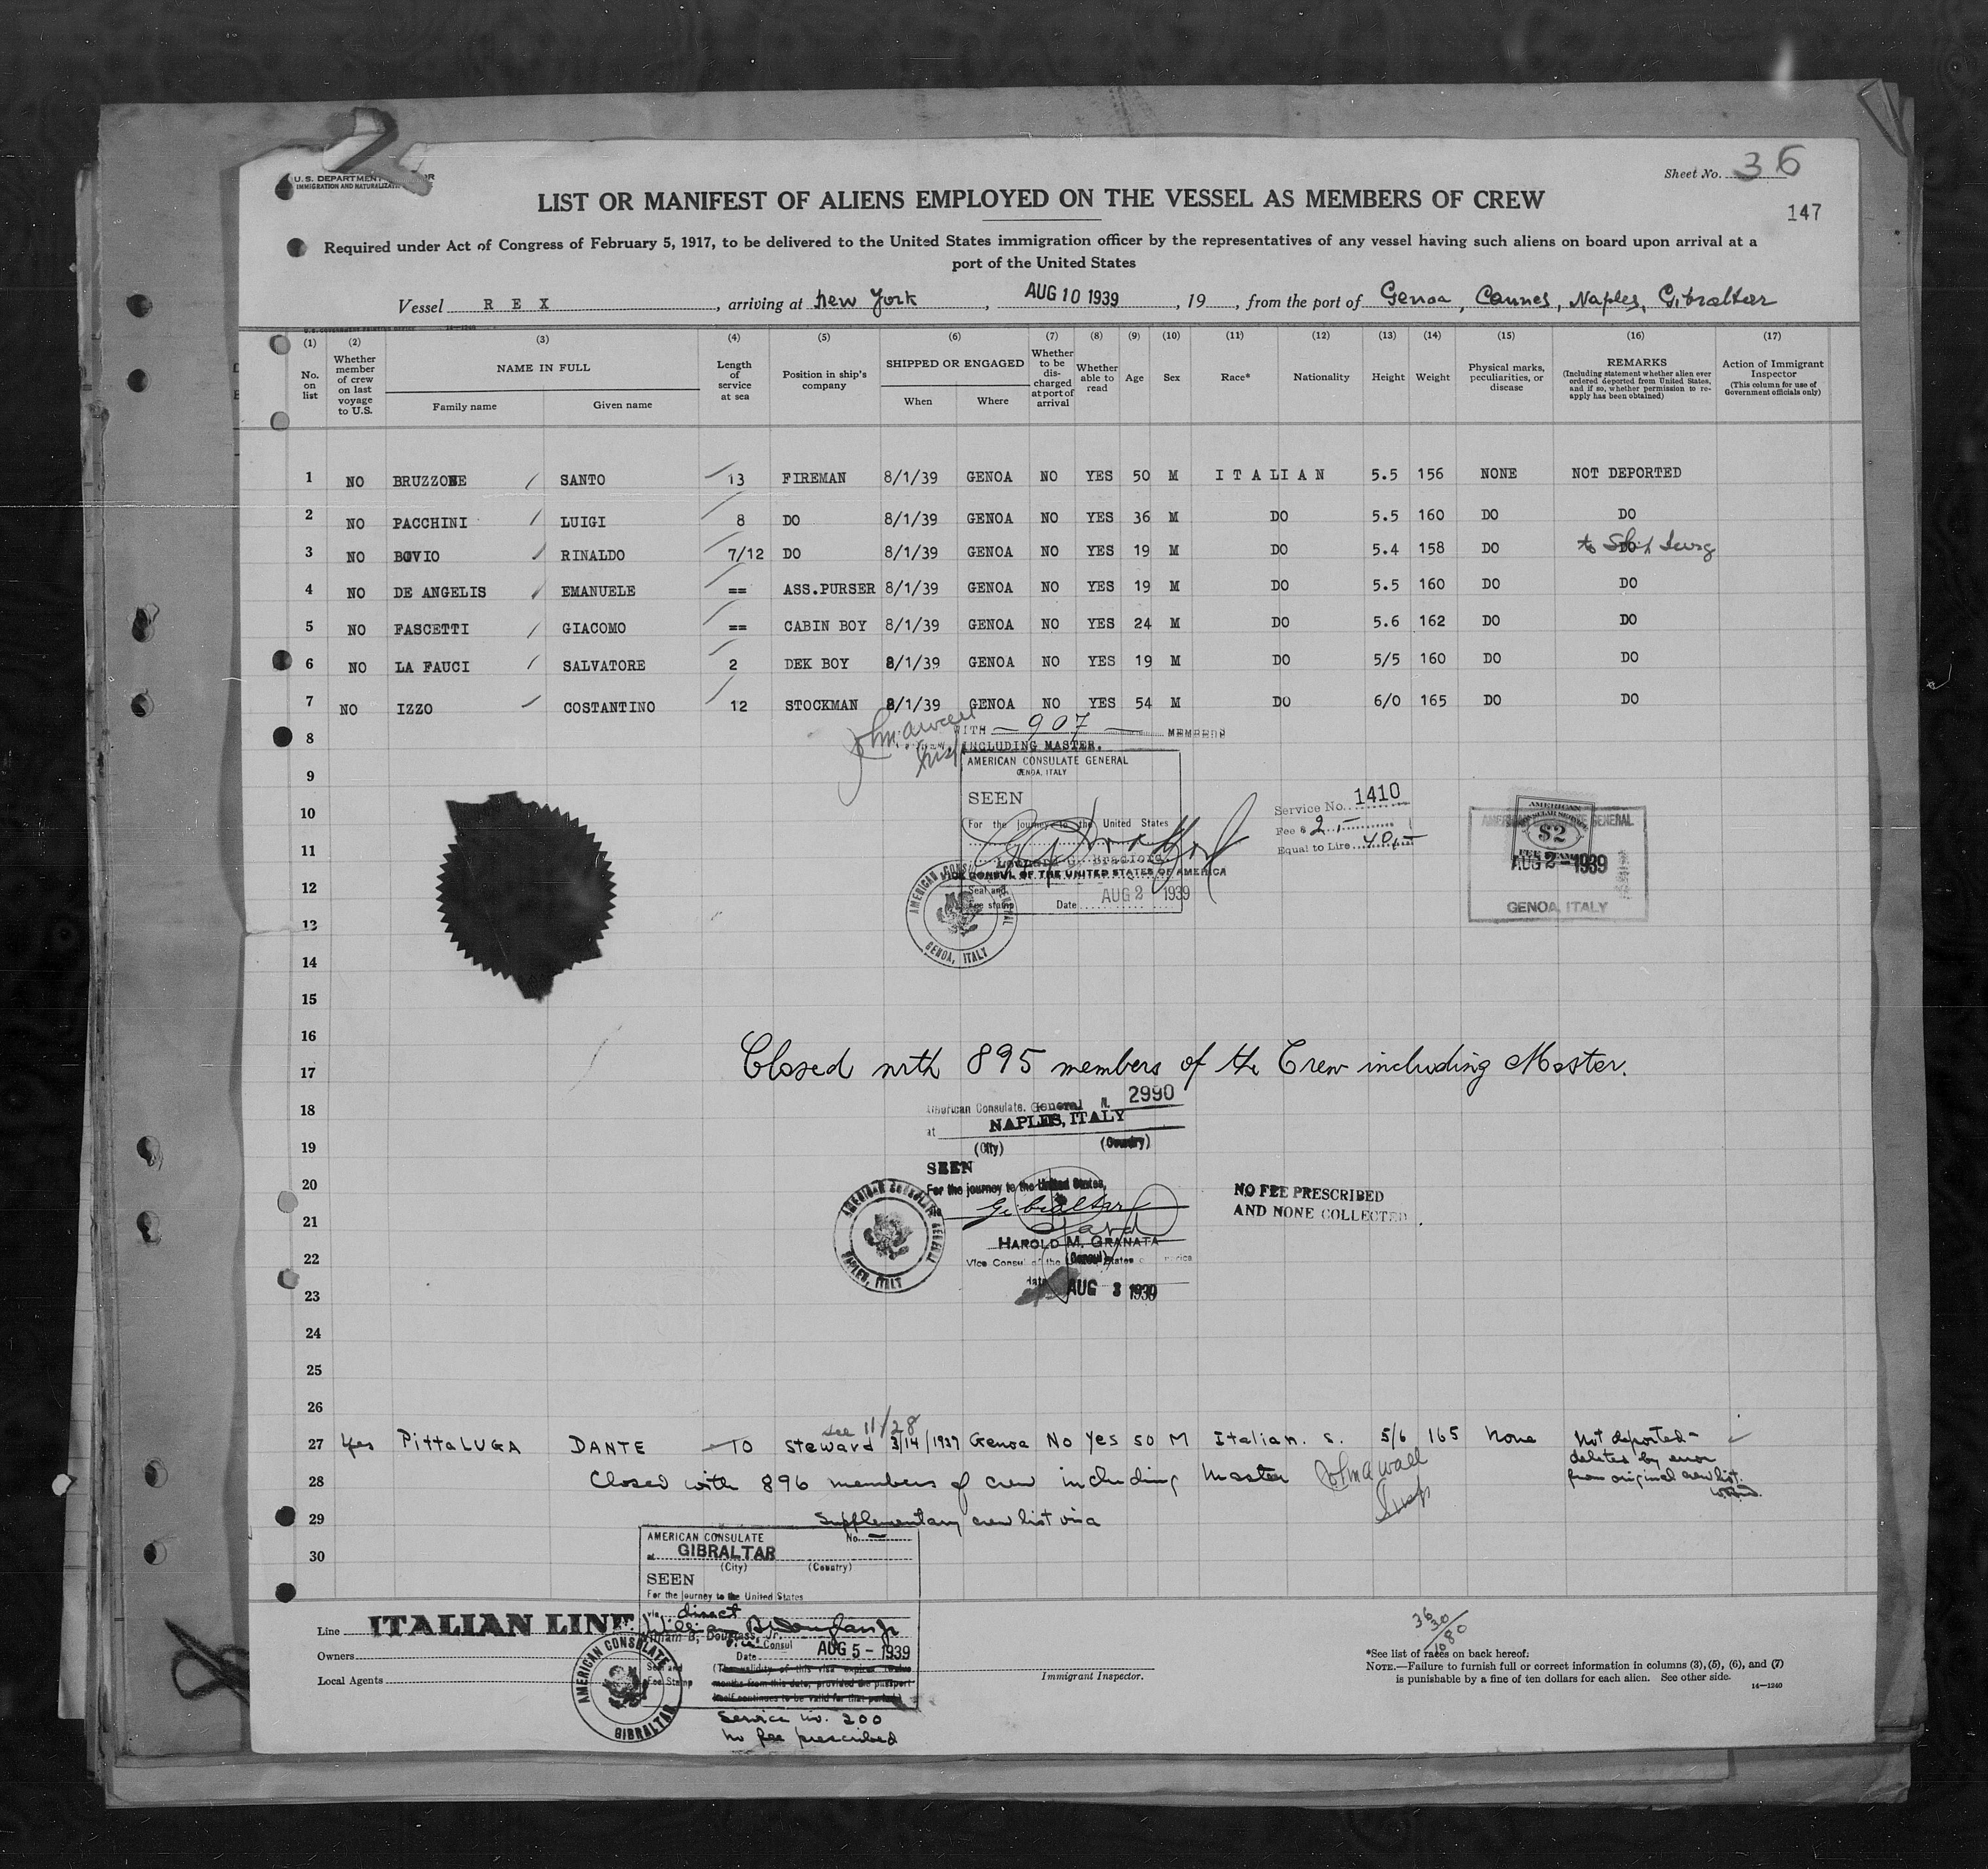 U.S. DEPARTMENT
IMMIGRATION AND
Sheet No. 36
LIST OR MANIFEST OF ALIENS EMPLOYED ON THE VESSEL AS MEMBERS OF CREW
147
Required under Act of Congress of February 5, 1917, to be delivered to the United States immigration officer by the representatives of any vessel having such aliens on board upon arrival at a
port of the United States
Vessel REX, arriving at New York, AUG 10 1939, 19, from the port of Genoa, Cannes, Naples, Gibraltar
(1) (2) (3) (4) (5) (6) (7) (8) (9) (10) (11) (12) (13) (14) (15) (16) (17)
No. on list
Whether member of crew on last voyage to U.S.
NAME IN FULL
Family name
Given name
Length of service at sea
Position in ship's company
SHIPPED OR ENGAGED
When
Where
Whether to be discharged at port of arrival
Whether able to read
Age
Sex
Race*
Nationality
Height
Weight
Physical marks, peculiarities, or disease
REMARKS
(Including statement whether alien ever ordered deported from United States, and if so, whether permission to reapply has been obtained)
Action of Immigrant Inspector
(This column for use of Government officials only)
1 NO BRUZZONE SANTO 13 FIREMAN 8/1/39 GENOA NO YES 50 M ITALIAN 5.5 156 NONE NOT DEPORTED
2 NO PACCHINI LUIGI 8 DO 8/1/39 GENOA NO YES 36 M DO 5.5 160 DO DO
3 NO BOVIO RINALDO 7/12 DO 8/1/39 GENOA NO YES 19 M DO 5.4 158 DO DO
4 NO DE ANGELIS EMANUELE == ASS.PURSER 8/1/39 GENOA NO YES 19 M DO 5.5 160 DO DO
5 NO FASCETTI GIACOMO == CABIN BOY 8/1/39 GENOA NO YES 24 M DO 5.6 162 DO DO
6 NO LA FAUCI SALVATORE 2 DEK BOY 8/1/39 GENOA NO YES 19 M DO 5/5 160 DO DO
7 NO IZZO COSTANTINO 12 STOCKMAN 8/1/39 GENOA NO YES 54 M DO 6/0 165 DO DO
8 WITH — 907 — MEMBERS
INCLUDING MASTER.
9 AMERICAN CONSULATE GENERAL
GENOA, ITALY
SEEN
10 For the journey to the United States
Service No. 1410
Fee $ 2.-
Equal to Lire 40,-
AMERICAN CONSULATE GENERAL
AMERICAN CONSULAR SERVICE
$2
FEE STAMP
AUG 2 - 1939
GENOA, ITALY
11
VICE CONSUL OF THE UNITED STATES OF AMERICA
12 Seal and
Fee stamp
Date AUG 2 1939
AMERICAN CONSULATE GENERAL
GENOA, ITALY
13
14
15
16
17 Closed with 895 members of the Crew including Master.
18 American Consulate General N. 2990
at NAPLES, ITALY
19 (City) (Country)
SEEN
20 For the journey to the United States,
NO FEE PRESCRIBED
AND NONE COLLECTED
21 Gibraltar
HAROLD M. GRANATA
22 Vice Consul of the United States of America
date
23 AUG 3 1939
AMERICAN CONSULATE GENERAL
NAPLES, ITALY
24
25
26
see 11/28
27 Yes PittaLUGA DANTE 10 steward 3/14/1939 Genoa No Yes 50 M Italian. S. 5/6 165 None Not deported-
deleted by error
from original crew list.
28 Closed with 896 members of crew including Master
29 Supplementary crew list visa
30
AMERICAN CONSULATE No. —
at GIBRALTAR
(City) (Country)
SEEN
For the journey to the United States
via direct
William B. Douglass, Jr.
Vice Consul
Date AUG 5 - 1939
Seal and
Fee Stamp
(The validity of this visa expires twelve
months from this date, provided the passport
itself continues to be valid for that period.)
Service no. 200
No fee prescribed
AMERICAN CONSULATE
GIBRALTAR
Line ITALIAN LINE
Owners
Local Agents
Immigrant Inspector.
36
30
1080
*See list of races on back hereof.
NOTE.—Failure to furnish full or correct information in columns (3), (5), (6), and (7)
is punishable by a fine of ten dollars for each alien. See other side.
14—1240